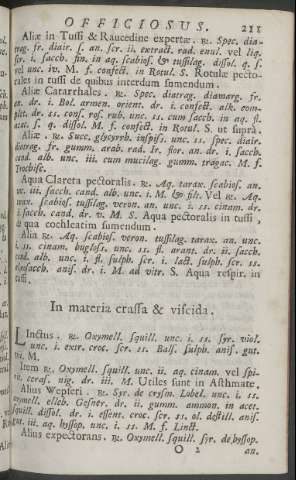 OFFICIOSUS. 211
Aliæ in Tussi & Raucedine expertæ. ℞. Spec. dia-
nag. fr. diair. ʃ. an. scr. ii. extract. rad. enul. vel liq.
scr. i. sacch. sin. in aq. scabios. & tussilag. dissol. q. s.
vel unc. iv. M. f. confect. in Rotul. S. Rotulæ pecto-
rales in tussi de quibus interdum sumendum.
Aliæ Catarrhales. ℞. Spec. diatrag. diamarg. fr.
an. dr. i. Bol. armen. orient. dr. i. confect. alk. com-
plet. dr. ss. cons. ros. rub. unc. ss. cum sacch. in aq. fl.
acac. s. q. dissol. M. f. confect. in Rotul. S. ut supra.
Aliæ. ℞. Succ. glycyrrh. inspiss. unc. ss. spec. diair.
diatrag. fr. gumm. arab. rad. Ir. flor. an. dr. i. sacch.
cand. alb. unc. iii. cum mucilag. gumm. tragac. M. f.
Trochisc.
Aqua Clareta pectoralis. ℞. Aq. tarax. scabios. an.
iii. sacch. cand. alb. unc. i. M. & filt. Vel ℞. Aq.
scabios. tussilag. veron. an. unc. i. ss. cinam. dr.
i. sacch. cand. dr. v. M. S. Aqua pectoralis in tussi,
de qua cochleatim sumendum.
Alia ℞. Aq. scabios. veron. tussilag. tarax. an. unc.
i. ss. cinam. bugloss. unc. ss. fl. arant. dr. ii. sacch.
cand. alb. unc. i. fl. sulph. scr. i. lact. sulph. scr. ss.
anis. dr. i. M. ad vitr. S. Aqua respir. in
tussi.
In materia crassa & viscida.
LInctus. ℞. Oxymell. squill. unc. i. ss. syr. viol.
unc. i. extr. croc. scr. ss. Bals. sulph. anis. gut.
vii. M.
Item ℞. Oxymell. squill. unc. ii. aq. cinam. vel spi-
rit. ceras. nig. dr. iii. M Utiles sunt in Asthmate.
Alius Wepferi. ℞. Syr. de erysim. Lobel. unc. i. ss.
oxymell. elleb. Gesner. dr. ii. gumm. ammon. in acet.
squill. dissol. dr. i. essent. croc. scr. ss. ol. destill. anis.
gut. iii. aq. hyssop. unc. i. ss. M. f. Linct.
Alius expectorans. ℞. Oxymell. squill. syr. de hyssop.
O 2 an.